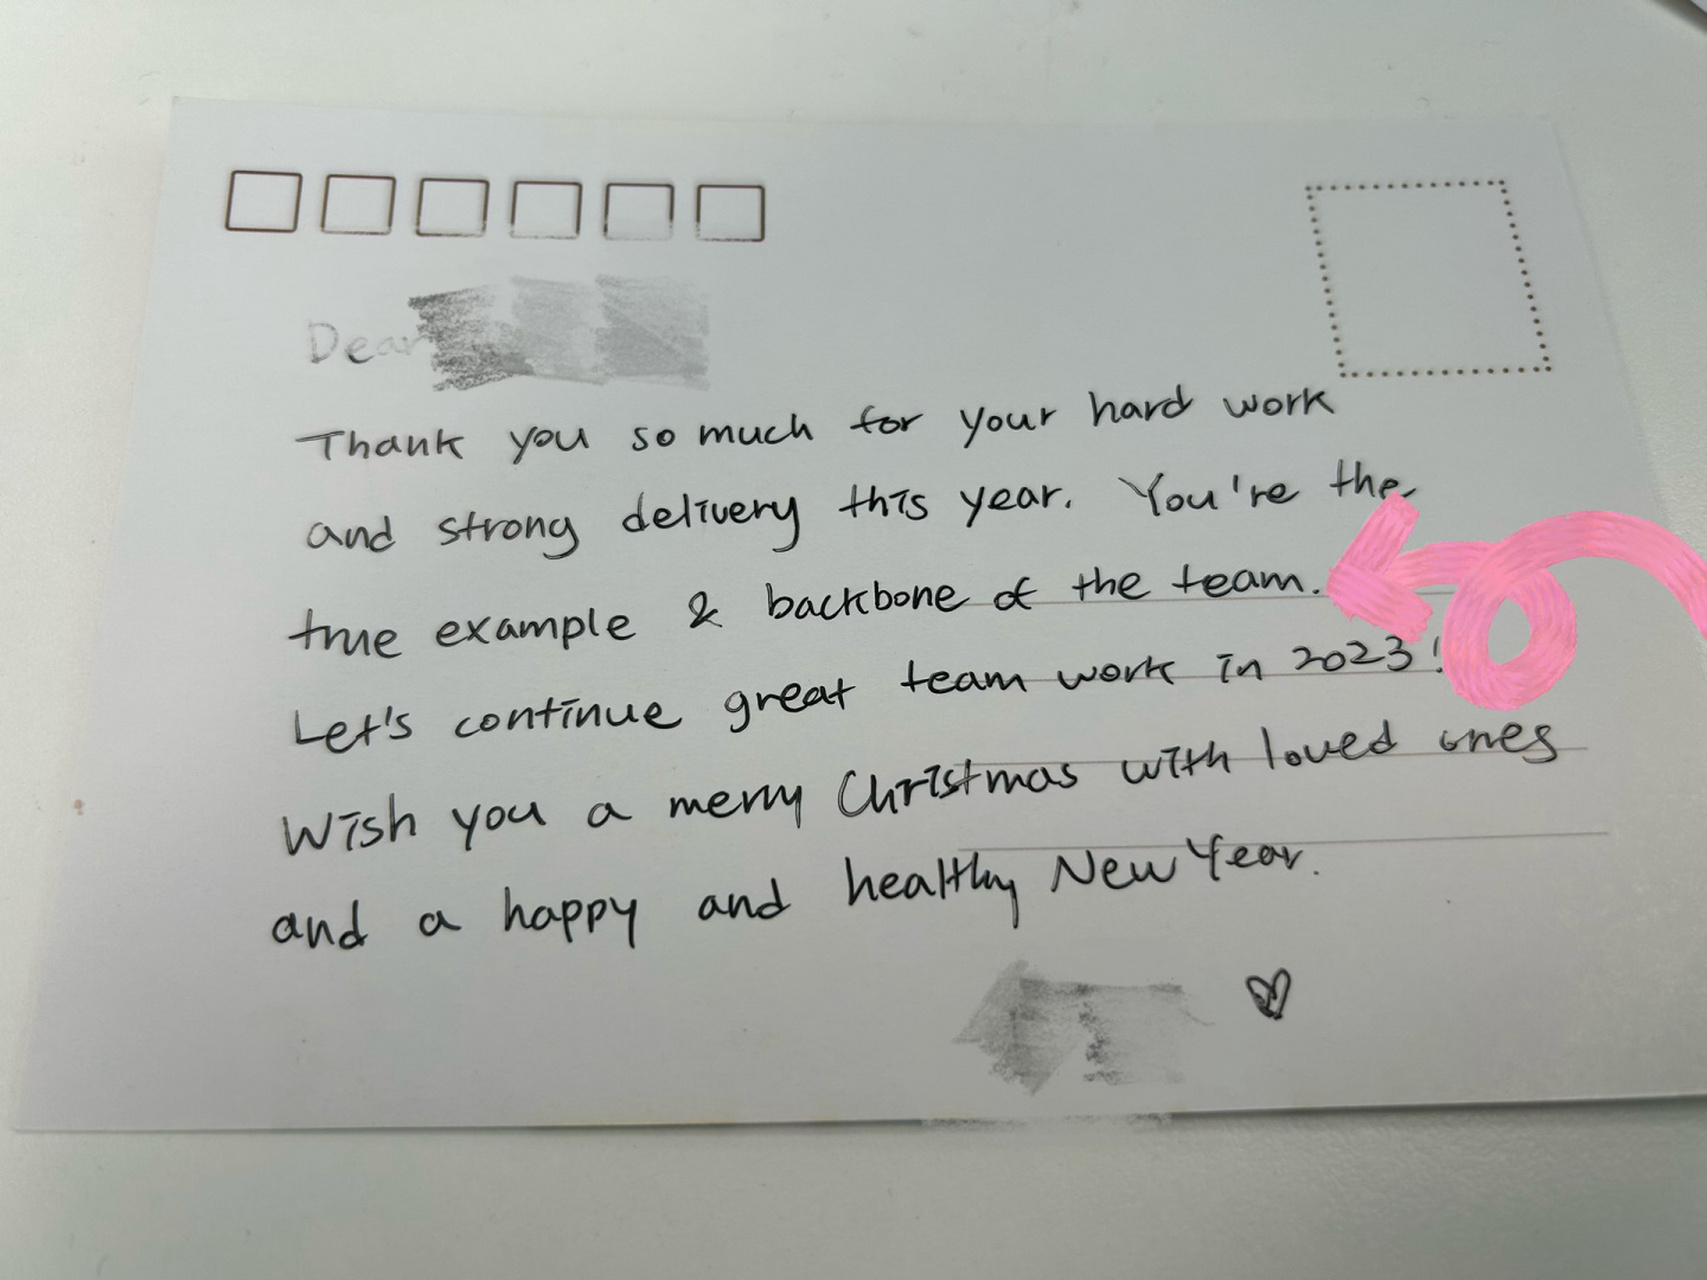 Dear
Thank you so much for your hard work
and strong delivery this year. You're the
true example & backbone of the team.
Let's continue great team work in 2023!
Wish you a merry Christmas with loved ones
and a happy and healthy New Year.